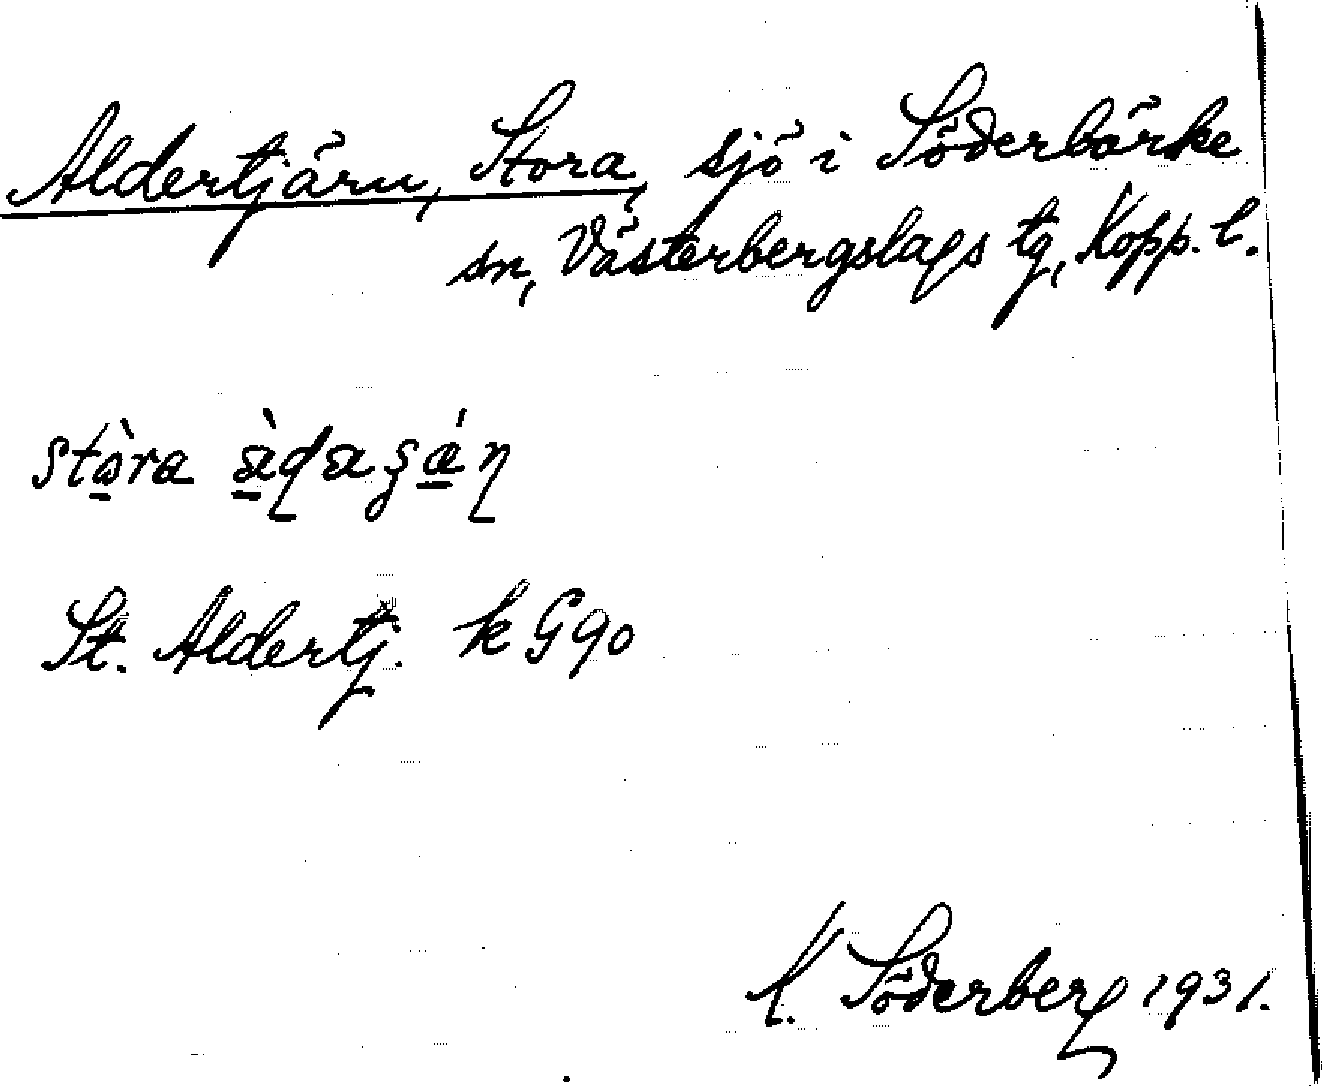 Aldertjärn, Stora, sjö i Söderbärke
sn, Västerbergslags tg, Kopp. l.
St. Aldertj. k G 90
Söderberg 1931.